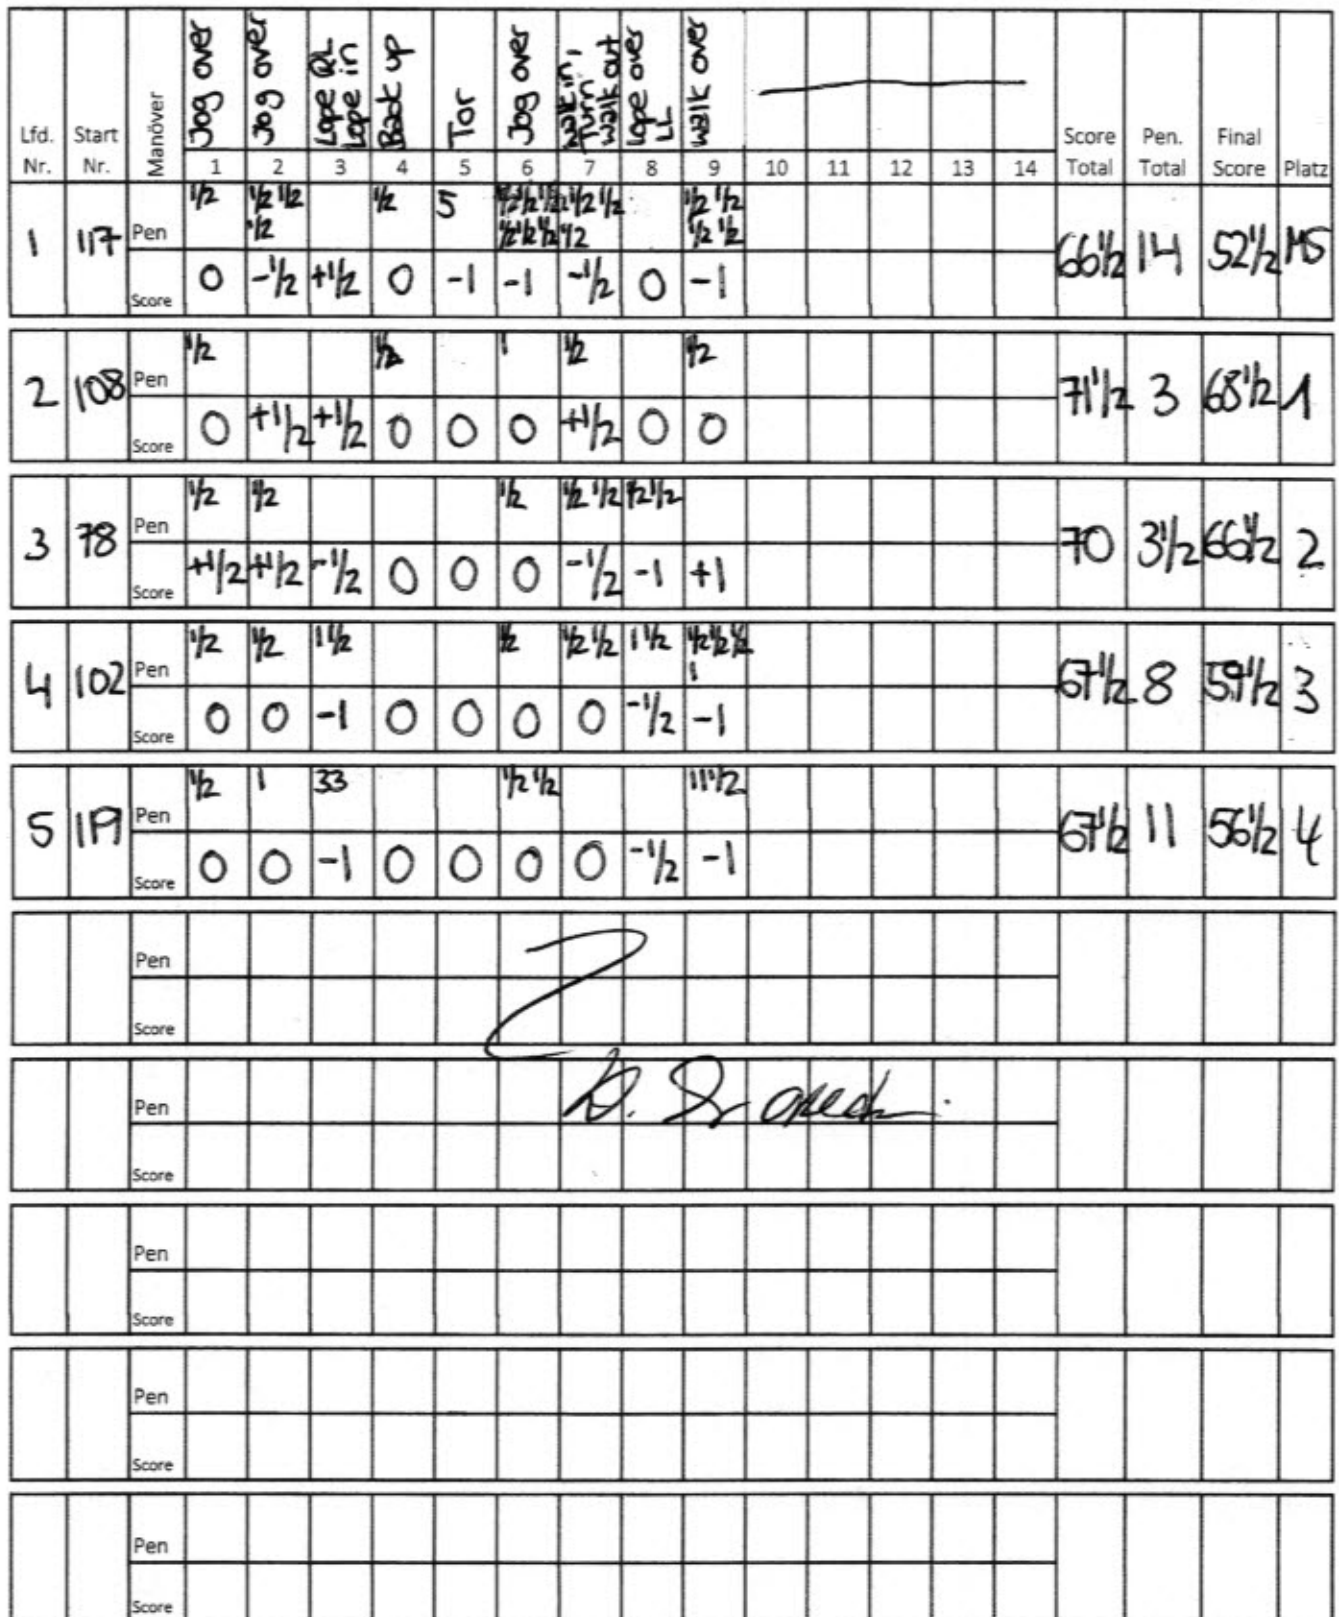 Lfd. Nr. Start Nr. Manöver Jog over Jog over Lope RL Lope in Back up Tor Jog over Walk in, Turn, walk out Lope over LL Walk over Score Total Pen. Total Final Score Platz
1 2 3 4 5 6 7 8 9 10 11 12 13 14
Pen 1/2 1/2 1/2 1/2 1/2 5 1/2 1/2 1/2 1/2 1/2 1/2 1/2 1/2 1/2 1/2 1/2 1/2 1/2
1 117 66 1/2 14 52 1/2
Score 0 -1/2 +1/2 0 -1 -1 -1/2 0 -1
Pen 1/2 1/2 1 1/2 1/2
2 108 71 1/2 3 68 1/2 1
Score 0 +1/2 +1/2 0 0 0 +1/2 0 0
Pen 1/2 1/2 1/2 1/2 1/2 1/2 1/2
3 78 70 3 1/2 66 1/2 2
Score +1/2 +1/2 -1/2 0 0 0 -1/2 -1 +1
Pen 1/2 1/2 1 1/2 1/2 1/2 1/2 1 1/2 1/2 1/2 1/2 1
4 102 67 1/2 8 59 1/2 3
Score 0 0 -1 0 0 0 0 -1/2 -1
Pen 1/2 1 33 1/2 1/2 1 1 1/2
5 119 67 1/2 11 56 1/2 4
Score 0 0 -1 0 0 0 0 -1/2 -1
Pen
Score
Pen
Score
Pen
Score
Pen
Score
Pen
Score